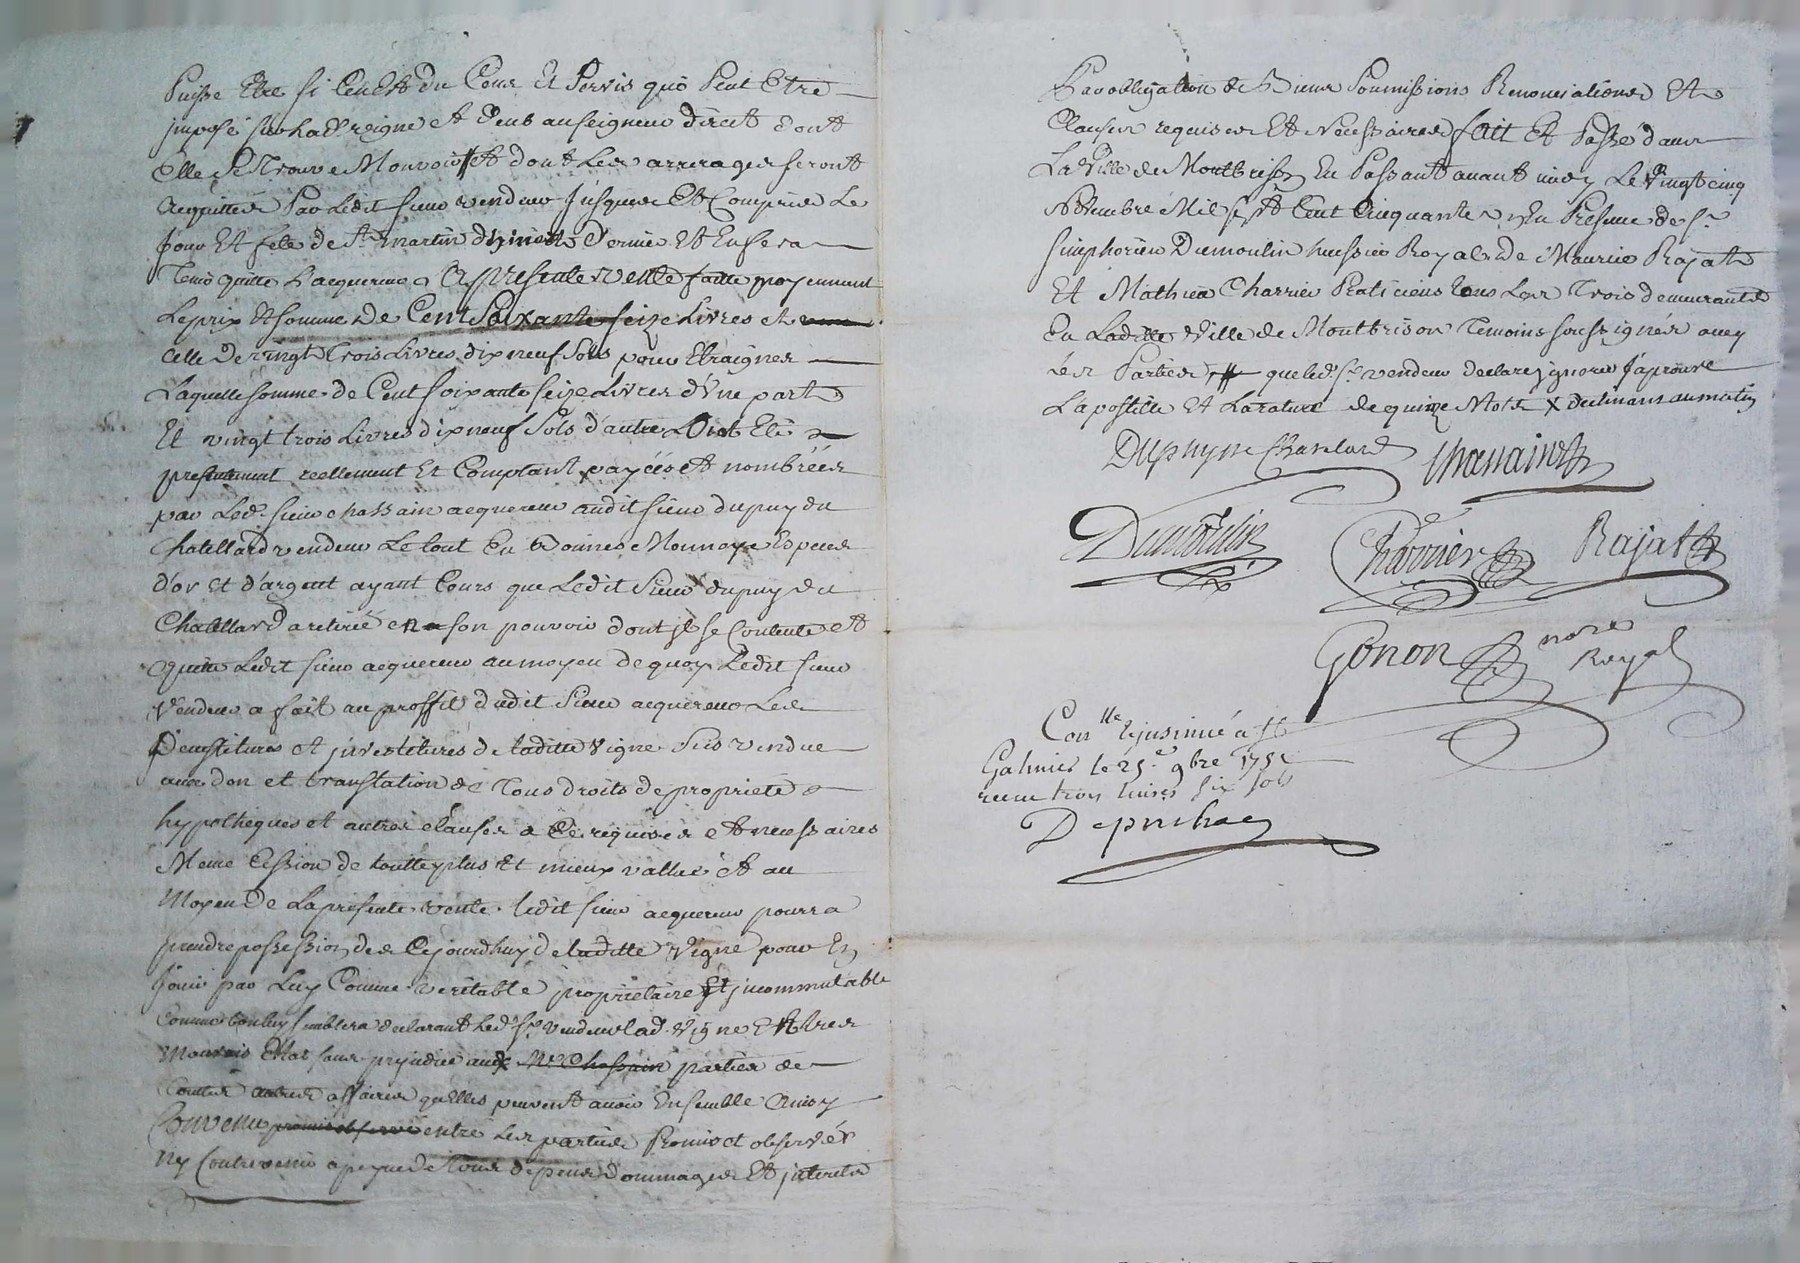 Puisse Etre si Cen Est du Cens Et Servis qui Peut Etre
jmposé sur lad. vigne et deub au seigneur direct dont
Elle Se Trouve Mouvoir # Et dont Les arrerages seront
acquittés Par Ledit sieur vendeur Jusques Et Compries Le
jour Et fete de St martin dernier Et En sera
Tenu quitte L'acquereur La presente vente faitte moyennant
Le prix Et somme De Cent Soixante seize Livres et
celle De vingt Trois Livres dix neuf Sols pour Etraignes
Laquelle somme de Cent soixante seize Livres d'Une part
Et vingt trois Livres dix neuf Sols d'autre Ont Eté
presentement reellement Et Comptant payées et nombrées
par Led. sieur chassain acquereur audit sieur dupuy du
Chatellard vendeur Le tout En Bonnes Monnoye Especes
d'or et d'argent ayant Cours que Ledit Sieur dupuy du
Chatellard a retirée en son pouvoir dont jl se Contente Et
quitte Ledit sieur acquereur au moyen de quoy Ledit sieur
Vendeur a fait au proffit dudit Sieur acquereur Les
Demititures et jnvestitures de laditte vigne sus vendue
avec don et translation de Tous droits de proprieté
hypotheques et autres clauses a Ce requises et necessaires
Meme Cession de toutte plus Et mieux vallue Et au
Moyen de La presente vente ledit sieur acquereur pourra
prendre possession des Cejourdhuy de laditte vigne pour En
Jouir par Luy Comme veritable proprietaire Et jncommutable
Comme bon luy semblera declarant Led. sr. vendeur lad. vigne Etre
Mauvais Etat sans prejudice aux Mr Chassain parties de
Touttes autres affaires quelles peuvent avoir Ensemble Ainsy
Convenu promis observé entre Les parties Promis et observér
Ny Contrevenir a peyne de Tous depens Dommages Et jnterets
Par obligation de Biens Soumissions Renonciations Et
Clauses requises Et Necessaires fait Et Passé dans
La Ville de Montbrison En Passant avant midy Le vingt cinq
Novembre Mil sept Cent Cinquante En Presence de sr.
simphorien Dumoulin huissier Royal de Maurice Rajat
Et Mathieu Charrier Praticiens tous Les Trois demeurants
En Laditte Ville de Montbrison Temoins soussignés avec
Les Parties # que led. sr. vendeur declare ignorer J'aprouve
L'apostille Et La rature de quinze Mots X
Dupuy Chatelard Chassain
Dumoulin Charrier Rajat
Gonon nore
Royal
Conlle et jnsinué a St
Galmier le 25.e 9bre 175
receu trois livres six sols